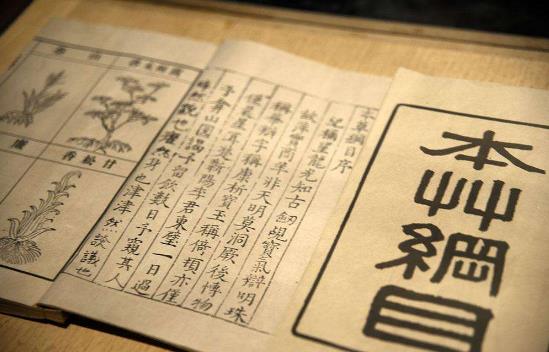 本艸綱目
本草綱目序
紀稱望龍光知古劍覘寶氣辯明珠
故萍實商羊非天明莫洞厥後博物
稱華辯字稱康析寶玉稱倚頓亦僅
僅晨星耳楚蘄陽李君東璧一日過
予弇山園謁予留飲數日予窺其人
睟然貌也癯然身也津津然譚議也
甘松香